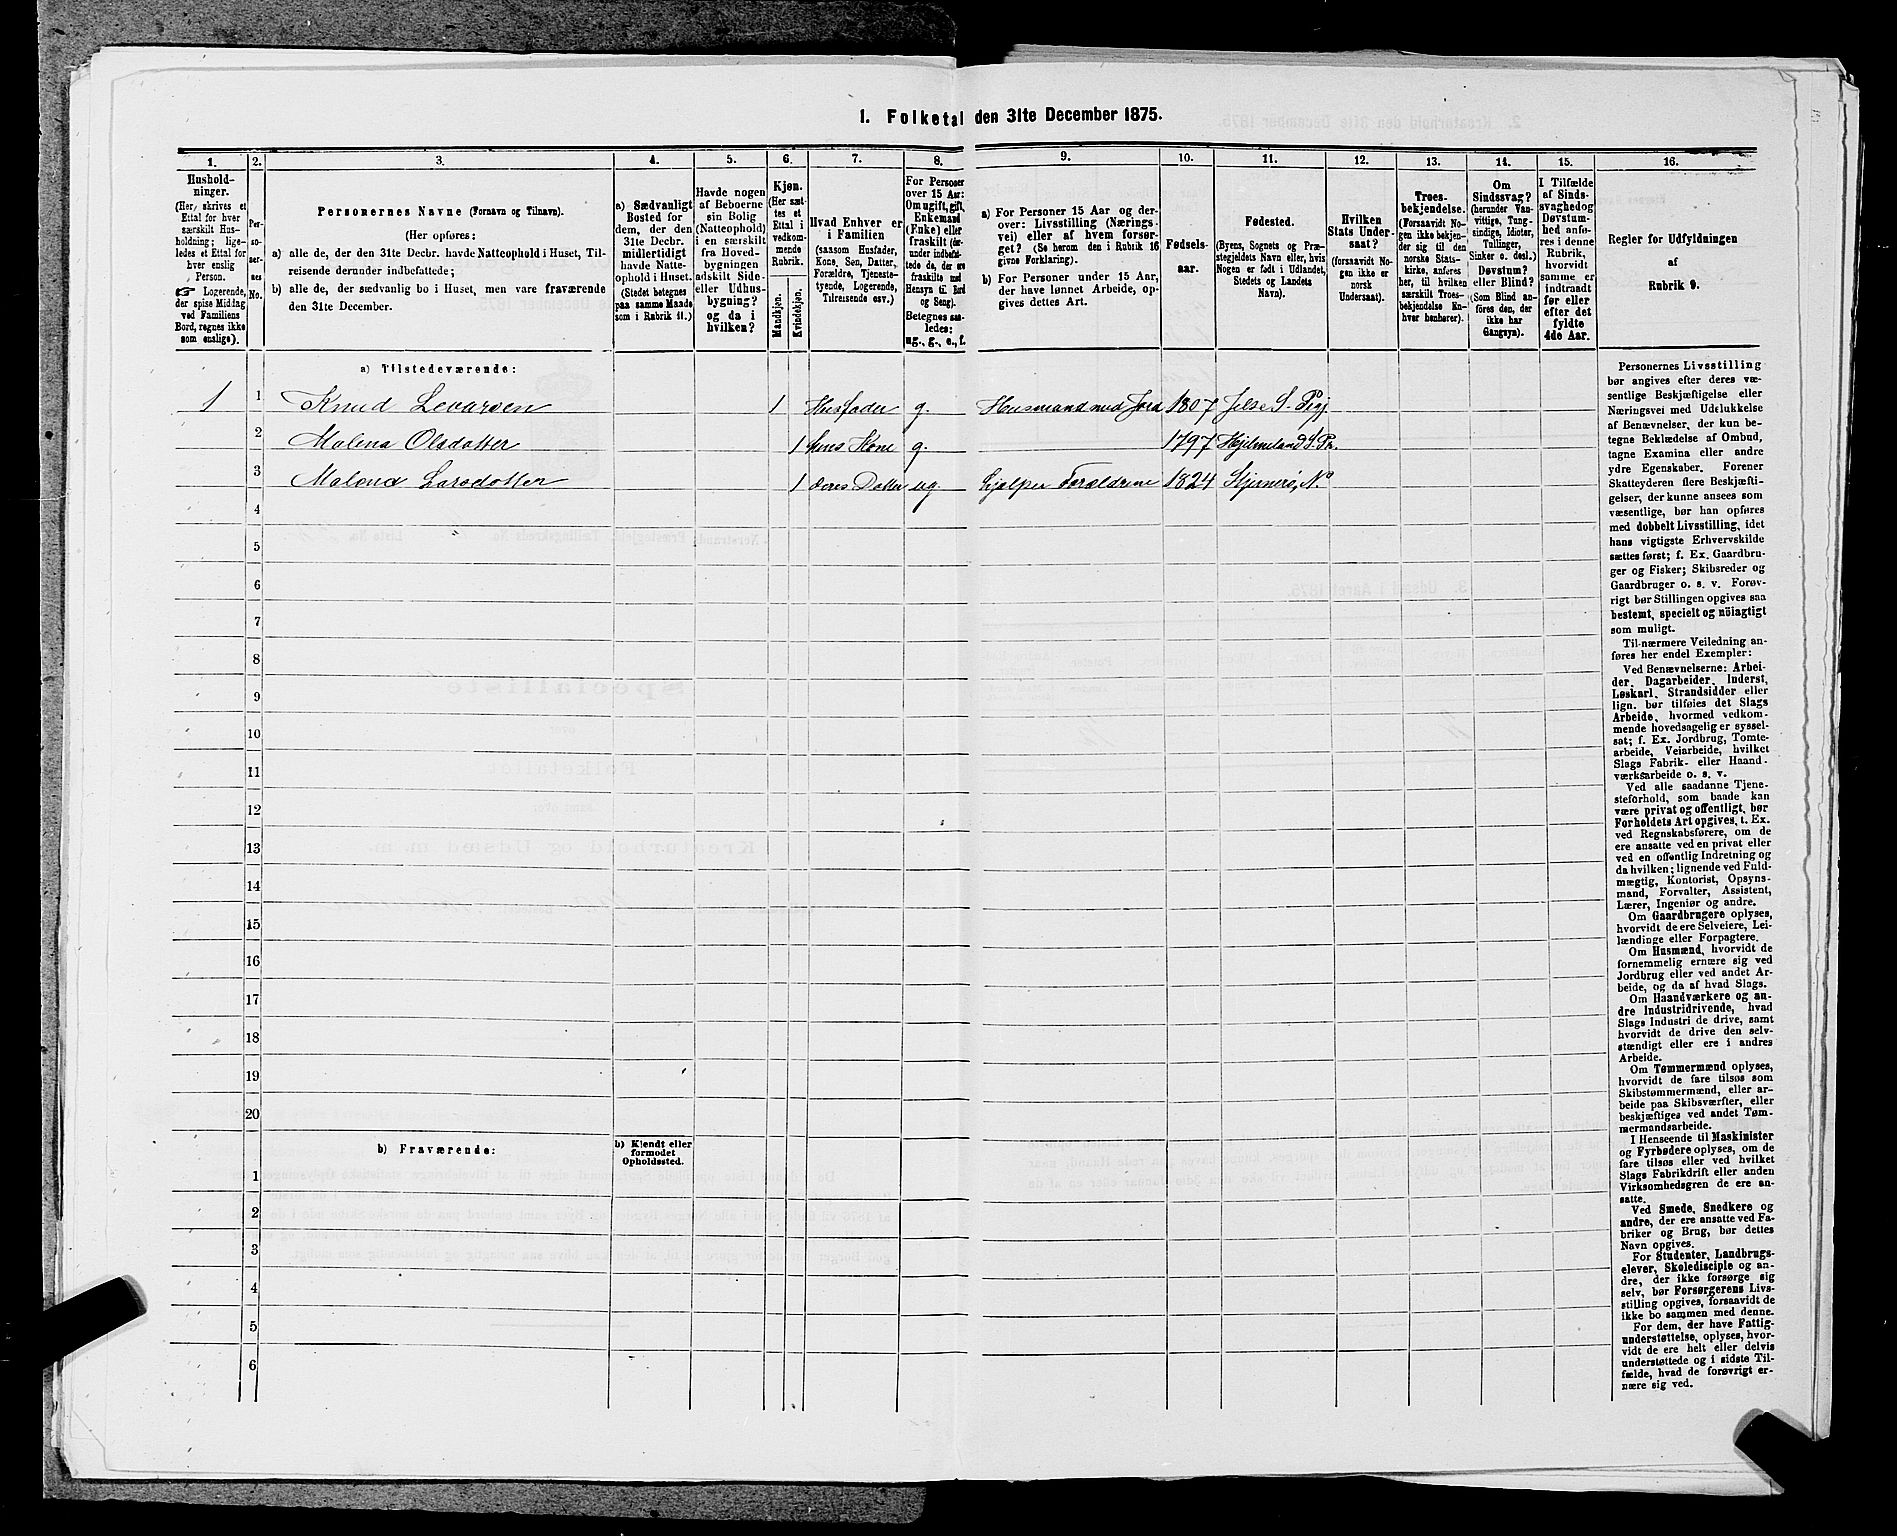 1. Folketal den 31te December 1875.
1. 2. 3. 4. 5. 6. 7. 8. 9. 10. 11. 12. 13. 14. 15. 16.
Hushold-
ninger.
(Her skrives et
Ettal for hver
særskilt Hus-
holdning; lige-
ledes et Ettal
for hver enslig
Person.
☞ Logerende,
der spise Middag
ved Familiens
Bord, regnes ikke
som enslige).
Per-
so-
ner-
nes
No.
Personernes Navne (Fornavn og Tilnavn).
(Her opføres:
a) alle de, der den 31te Decbr. havde Natteophold i Huset, Til-
reisende derunder indbefattede;
b) alle de, der sædvanlig bo i Huset, men vare fraværende
den 31te December.
a) Sædvanligt
Bosted for
dem, der den
31te Decbr.
midlertidigt
havde Natte-
ophold i Huset.
(Stedet betegnes
paa samme Maade
som i Rubrik 11.)
Havde nogen
af Beboerne
sin Bolig
(Natteophold)
i en særskilt
fra Hoved-
bygningen
adskilt Side-
eller Udhus-
bygning?
og da i
hvilken?
Kjøn.
(Her sæt-
tes et
Ettal i
vedkom-
mende
Rubrik.
Mandkjøn.
Kvindekjøn.
Hvad Enhver er
i Familien
(saasom Husfader,
Kone, Søn, Datter,
Forældre, Tjeneste-
tyende, Logerende,
Tilreisende osv.)
For Personer
over 15 Aar:
Om ugift, gift,
Enkemand
(Enke) eller
fraskilt (der-
under indbefat-
tede de, der ere
fraskilte med
Hensyn til Bord
og Seng).
Betegnes saa-
ledes:
ug., g., e., f.
a) For Personer 15 Aar og der-
over: Livsstilling (Nærings-
vei) eller af hvem forsør-
get? (Se herom den i Rubrik 16
givne Forklaring).
b) For Personer under 15 Aar,
der have lønnet Arbeide, op-
gives dettes Art.
Fødsels-
aar.
Fødested.
(Byens, Sognets og Præ-
stegjeldets Navn eller, hvis
Nogen er født i Udlandet,
Stedets og Landets
Navn).
Hvilken
Stats Under-
saat?
(forsaavidt No-
gen ikke er
norsk
Undersaat).
Troes-
bekjendelse.
(Forsaavidt No-
gen ikke bekjen-
der sig til den
norske Stats-
kirke, anføres
her, til hvilken
særskilt Troes-
bekjendelse En-
hver henhører).
Om
Sindssvag?
(herunder Van-
vittige, Tung-
sindige, Idioter,
Tullinger,
Sinker o. desl.)
Døvstum?
eller Blind?
(Som Blind an-
føres den, der
ikke har
Gangsyn).
I Tilfælde
af Sinds-
svaghed og
Døvstum-
hed anfø-
res i denne
Rubrik,
hvorvidt
samme er
indtraadt
før eller
efter det
fyldte
4de Aar.
Regler for Udfyldningen
af
Rubrik 9.
a) Tilstedeværende:
1 1 Knud Levarsen 1 Husfader g. Husmand med Jord 1807 Jelse S. Pgj
2 Malena Olsdatter 1 hans Kone g. 1797 Hjelmeland S. Pr.
3 Malena Larsdatter 1 deres Datter ug. hjælper Forældrene 1824 Stjernerø, N.
4
5
6
7
8
9
10
11
12
13
14
15
16
17
18
19
20
b) Fraværende:
b) Kjendt eller
formodet
Opholdssted.
1
2
3
4
5
6
Personernes Livsstilling
bør angives efter deres væ-
sentlige Beskjæftigelse eller
Næringsvei med Udelukkelse
af Benævnelser, der kun be-
tegne Beklædelse af Ombud,
tagne Examina eller andre
ydre Egenskaber. Forener
Skatteyderen flere Beskjæfti-
gelser, der kunne ansees som
væsentlige, bør han opføres
med dobbelt Livsstilling, idet
hans vigtigste Erhvervskilde
sættes først; f. Ex. Gaardbru-
ger og Fisker; Skibsreder og
Gaardbruger o. s. v. Forøv-
rigt bør Stillingen opgives saa
bestemt, specielt og nöiagtigt
som muligt.
Til nærmere Veiledning an-
føres her endel Exempler:
Ved Benævnelserne: Arbei-
der, Dagarbeider, Inderst,
Løskarl, Strandsidder eller
lign. bør tilføies det Slags
Arbeide, hvormed vedkom-
mende hovedsagelig er syssel-
sat; f. Ex. Jordbrug, Tomte-
arbeide, Veiarbeide, hvilket
Slags Fabrik- eller Haand-
værksarbeide o. s. v.
Ved alle saadanne Tjene-
steforhold, som baade kan
være privat og offentligt, bør
Forholdets Art opgives, t. Ex.
ved Regnskabsførere, om de
ere ansatte ved en privat eller
ved en offentlig Indretning og
da hvilken; lignende ved Fuld-
mægtig, Kontorist, Opsyns-
mand, Forvalter, Assistent,
Lærer, Ingeniør og andre.
Om Gaardbrugere oplyses,
hvorvidt de ere Selveiere, Lei-
lændinge eller Forpagtere.
Om Husmænd, hvorvidt de
fornemmelig ernære sig ved
Jordbrug eller ved andet Ar-
beide, og da af hvad Slags.
Om Haandværkere og an-
dre Industridrivende, hvad
Slags Industri de drive, samt
hvorvidt de drive den selv-
stændigt eller ere i andres
Arbeide.
Om Tømmermænd oplyses,
hvorvidt de fare tilsøs som
Skibstømmermænd, eller ar-
beide paa Skibsværfter, eller
beskjæftiges ved andet Tøm-
mermandsarbeide.
I Henseende til Maskinister
og Fyrbødere oplyses, om de
fare tilsøs eller ved hvilket
Slags Fabrikdrift eller anden
Virksomhedsgren de ere an-
satte.
Ved Smede, Snedkere og
andre, der ere ansatte ved Fa-
briker og Brug, bør dettes
Navn opgives.
For Studenter, Landbrugs-
elever, Skoledisciple og an-
dre, der ikke forsørge sig
selv, bør Forsørgerens Livs-
stilling opgives, forsaavidt de
ikke bo sammen med denne.
For dem, der have Fattig-
understøttelse, oplyses, hvor-
vidt de ere helt eller delvis
understøttede og i sidste Til-
fælde, hvad de forøvrigt er-
nære sig ved.